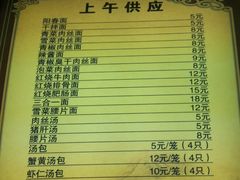 上午供应
阳春面 5元
干拌面 5元
青菜肉丝面 8元
雪菜肉丝面 8元
青椒肉丝面 8元
辣酱面 8元
青椒臭干肉丝面 9元
泡菜肉丝面 8元
红烧牛肉面 12元
红烧排骨面 12元
红烧肥肠面 15元
三合一面 18元
雪菜腰片面 15元
肉丝汤 5元
猪肝汤 8元
腰片汤
汤包 5元/笼（4只）
蟹黄汤包 12元/笼（4只）
虾仁汤包 10元/笼（4只）